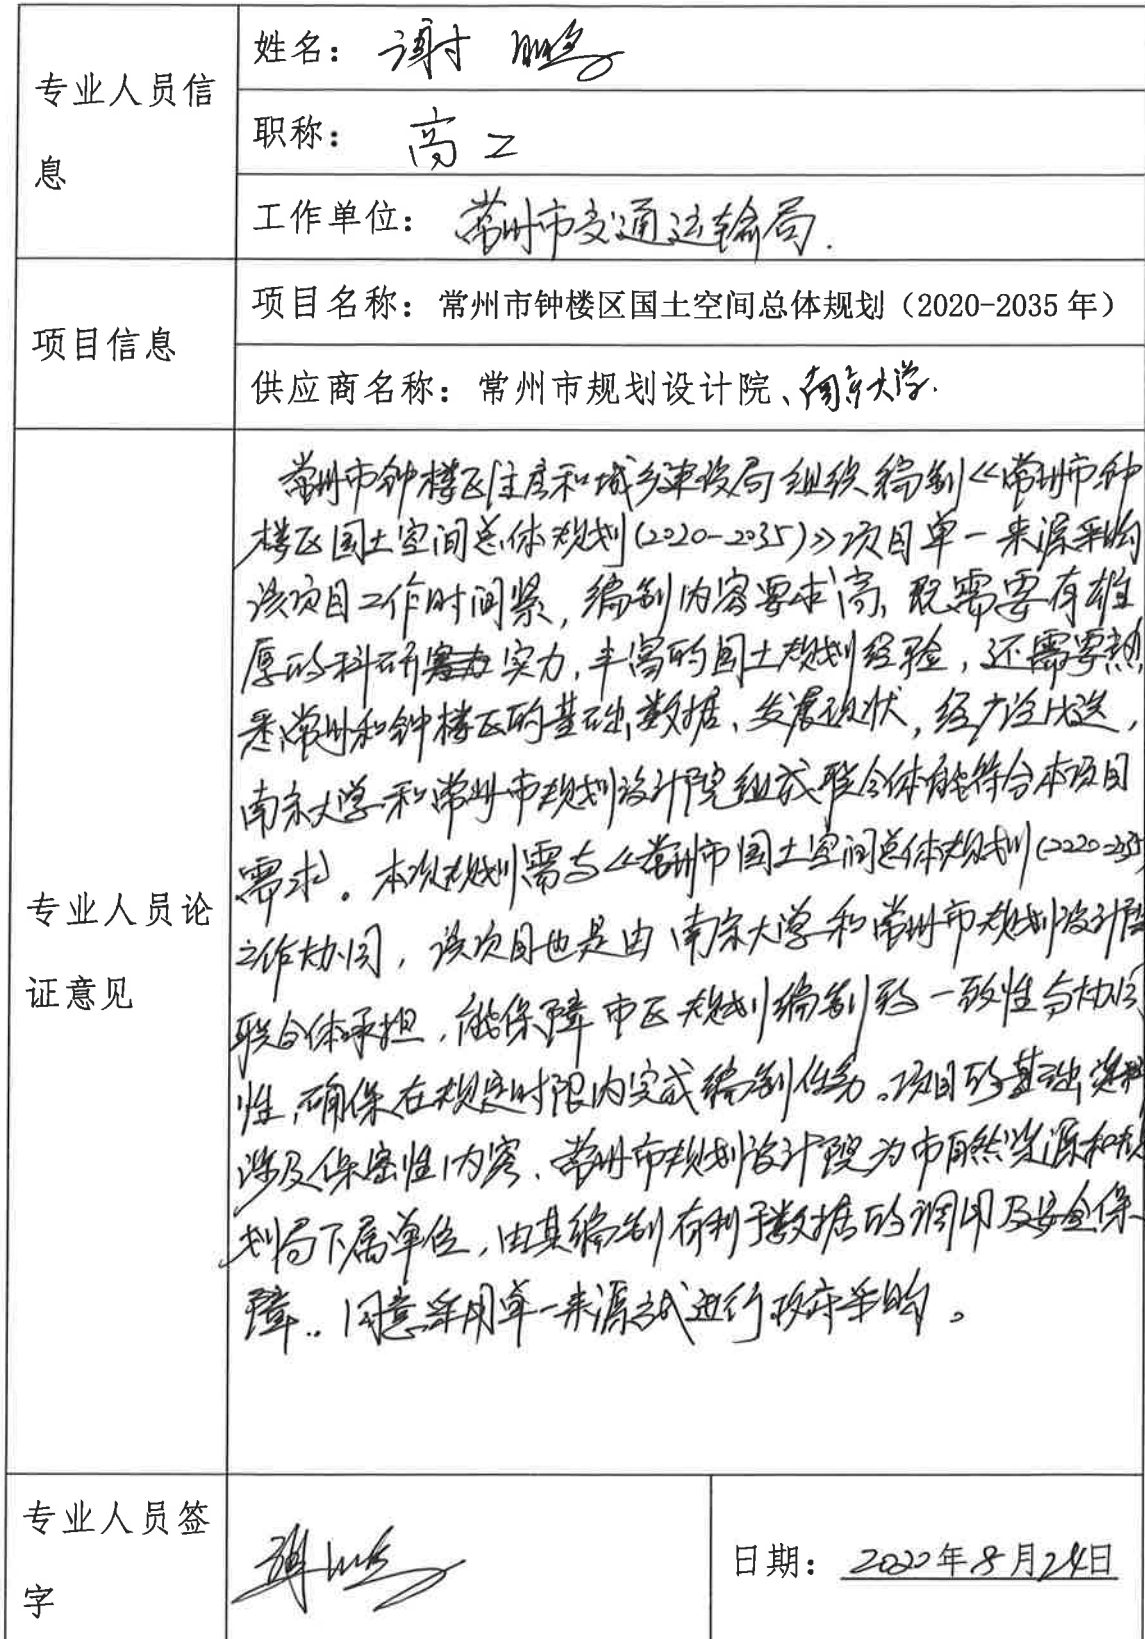 专业人员信息
姓名：谢鹏
职称：高工
工作单位：常州市交通运输局.
项目信息
项目名称：常州市钟楼区国土空间总体规划（2020-2035 年）
供应商名称：常州市规划设计院、南京大学.
专业人员论证意见
常州市钟楼区住房和城乡建设局组织编制《常州市钟
楼区国土空间总体规划(2020-2035)》项目单一来源采购
该项目工作时间紧，编制内容要求高，既需要有雄
厚的科研实力，丰富的国土规划经验，还需要熟
悉常州和钟楼区的基础数据、发展现状，经方论比选，
南京大学和常州市规划设计院组成联合体能符合本项目
需求。本次规划需与《常州市国土空间总体规划(2020-2035
工作协同，该项目也是由南京大学和常州市规划设计院
联合体承担，能保障市区规划编制的一致性与协同
性，确保在规定时限内完成编制任务。项目的基础资料
涉及保密性内容，常州市规划设计院为市自然资源和规
划局下属单位，由其编制有利于数据的调用及安全保
障.. 同意采用单一来源方式进行政府采购。
专业人员签字
谢鹏
日期：2020年8月24日